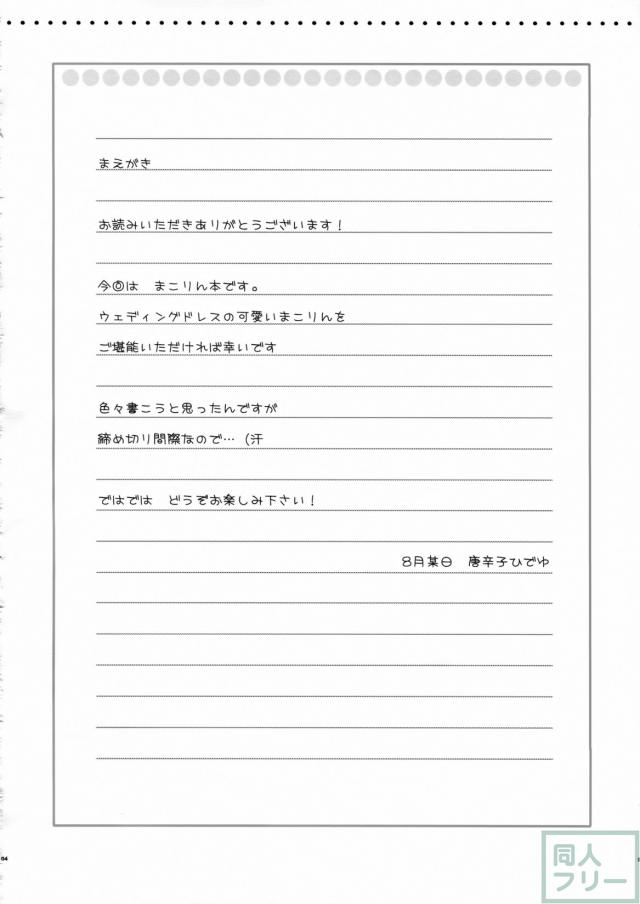 まえがき
お読みいただきありがとうございます！
今回は　まこりん本です。
ウェディングドレスの可愛いまこりんを
ご堪能いただければ幸いです
色々書こうと思ったんですが
締め切り間際なので…（汗
ではでは　どうぞお楽しみ下さい！
8月某日　唐辛子ひでゆ
04
同人
フリー